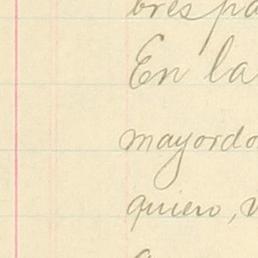 bres pa
En la
mayordo
quiero, v